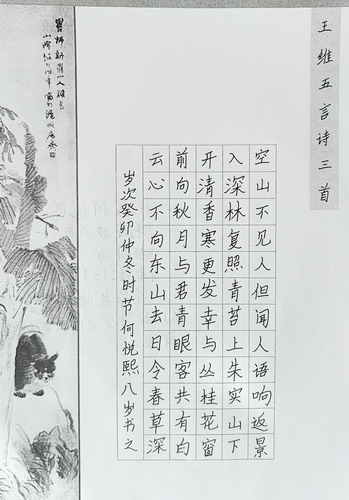 王维五言诗三首
空山不见人但闻人语响返景
入深林复照青苔上朱实山下
开清香寒更发幸与丛桂花窗
前向秋月与君青眼客共有白
云心不向东山去日令春草深
岁次癸卯仲冬时节何悦熙八岁书之